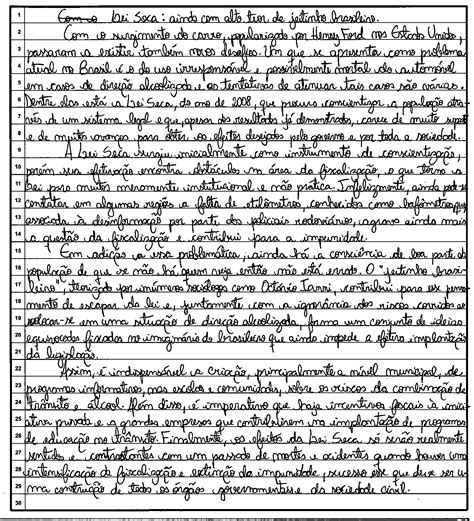 Com o Lei Seca: ainda com alto teor de jeitinho brasileiro.
Com o surgimento do carro, popularizado por Henry Ford nos Estado Unido,
passaram a existir também novos desafios. Um que se apresenta como problema
atual no Brasil é o do uso irresponsável e possivelmente mortal do automóvel
em casos de direção alcoolizada e as tentativas de atenuar tais casos são várias.
Dentre elas está a Lei Seca, do ano de 2008, que procura conscientizar a população atra-
vés de um sistema legal e que, apesar dos resultados já demonstrados, carece de muito suporte
e de muitos avanços para obter os efeitos desejados pelo governo e por toda a sociedade.
A Lei Seca surgiu, inicialmente, como instrumento de conscientização,
porém sua efetivação encontra obstáculos na área da fiscalização, o que torna a
Lei para muitos meramente institucional e não prática. Infelizmente, ainda pode-se
constatar em algumas regiões a falta de etilômetros, conhecidos como bafômetros, que
associada à desinformação por parte dos policiais rodoviários, agrava ainda mais
a questão da fiscalização e contribui para a impunidade.
Em adição a essa problemática, ainda há a consciência de boa parte da
população de que se não há quem veja então não está errado. O "jeitinho brasi-
leiro", teorizado por inúmeros sociólogos como Octávio Ianni, contribui para esse pensa-
mento de escapar da lei e, juntamente com a ignorância dos riscos corridos ao
colocar-se em uma situação de direção alcoolizada, forma um conjunto de ideias
equivocadas fixadas no imaginário do brasileiro que ainda impede a efetiva implantação
da legislação.
Assim, é indispensável a criação, principalmente a nível municipal, de
programas informativos, nas escolas e comunidades, sobre os riscos da combinação de
trânsito e álcool. Além disso, é imperativo que haja incentivos fiscais à inici-
ativa privada e a grandes empresas que contribuírem na implantação de programas
de educação no trânsito. Finalmente, os efeitos da Lei Seca só serão realmente
sentidos e contrastantes com um passado de mortes e acidentes quando houver uma
intensificação da fiscalização e extinção da impunidade, sucesso esse que deve ser u-
ma construção de todos os órgãos governamentais e da sociedade civil.